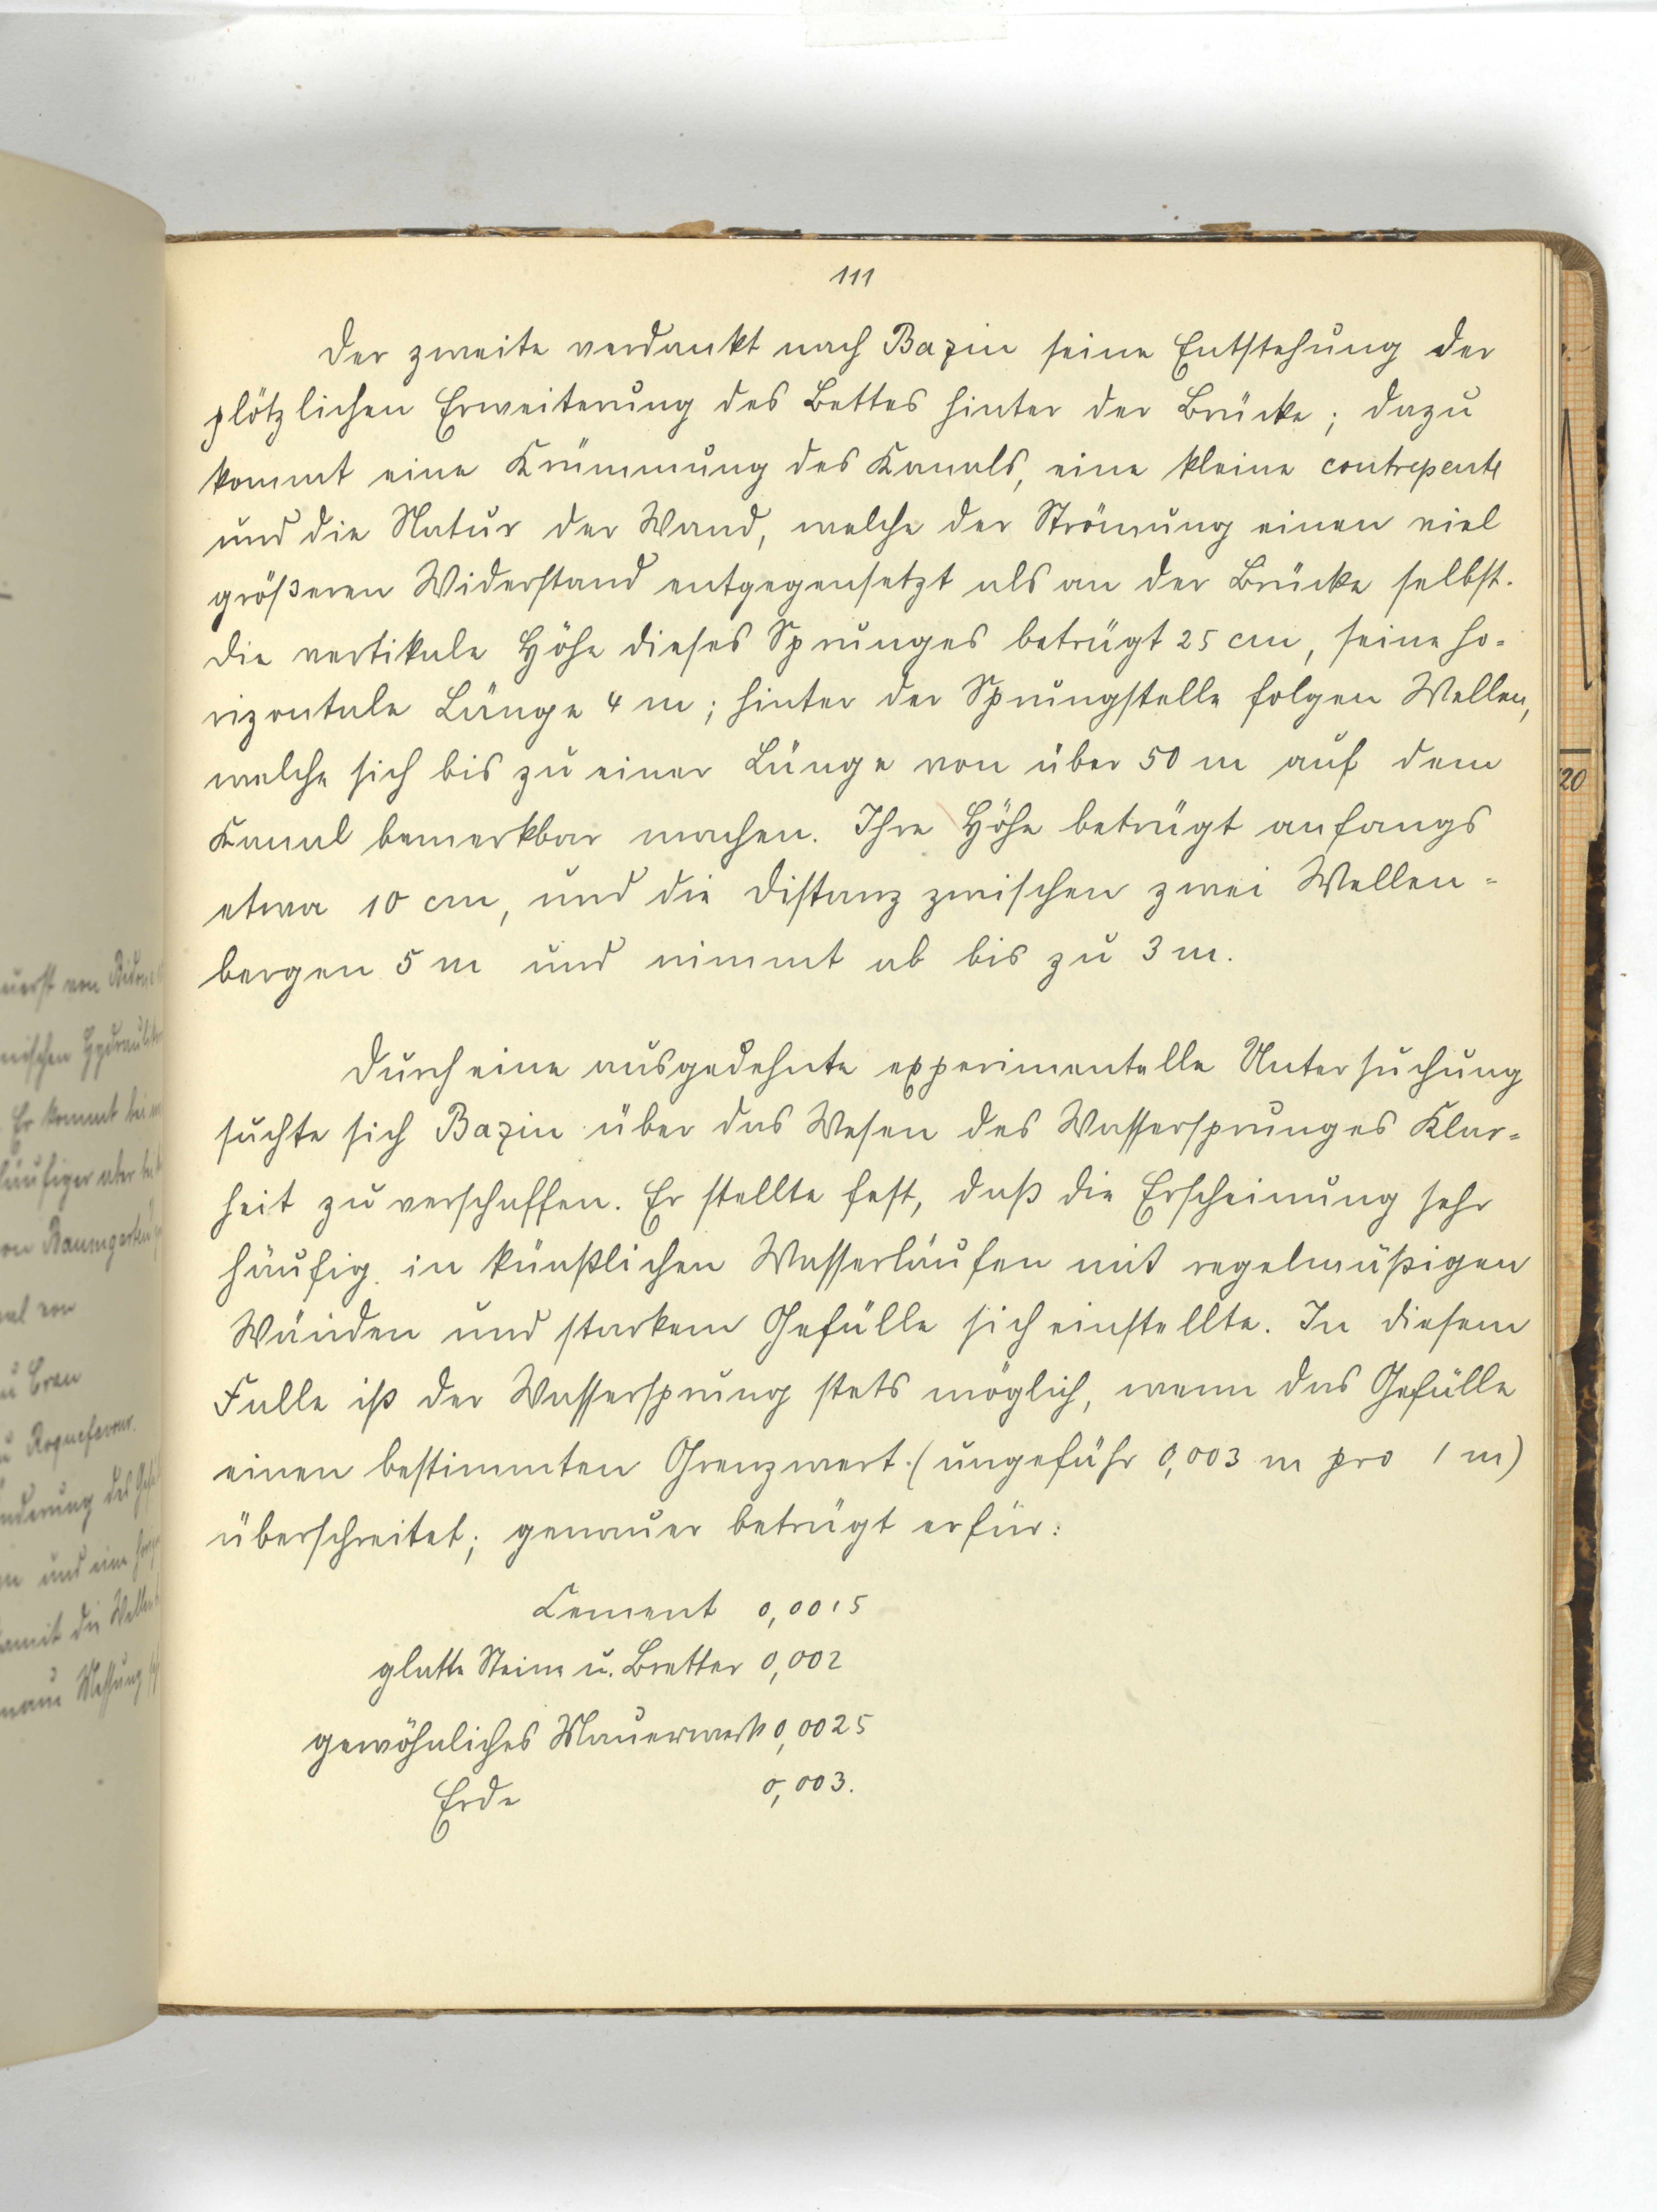 111
Der zweite verdankt nach Bazin seine Entstehung der
plötzlichen Erweiterung des Bettes hinter der Brücke; dazu
kommt eine Krümmung des Kanals, eine kleine contrepente
und die Natur der Wand, welche der Strömung einen viel
größeren Widerstand entgegensetzt als an der Brücke selbst.
Die vertikale Höhe dieses Sprunges beträgt 25 cm, seine ho-
rizontale Länge 4 m; hinter der Sprungstelle folgen Wellen,
welche sich bis zu einer Länge von über 50 m auf dem
Kanal bemerkbar machen. Ihre Höhe beträgt anfangs
etwa 10 cm, und die Distanz zwischen zwei Wellen-
bergen 5 m und nimmt ab bis zu 3 m.
Durch eine ausgedehnte experimentelle Untersuchung
suchte sich Bazin über das Wesen des Wassersprunges Klar-
heit zu verschaffen. Er stellte fest, daß die Erscheinung sehr
häufig in künstlichen Wasserläufen mit regelmäßigen
Wänden und starkem Gefälle sich einstellte. In diesem
Falle ist der Wassersprung stets möglich, wenn das Gefälle
einen bestimmten Grenzwert (ungefähr 0,003 m pro 1 m)
überschreitet; genauer beträgt er für:
Cement 0,0015
glatte Steine u. Bretter 0,002
gewöhnliches Mauerwerk 0,0025
Erde 0,003.
20